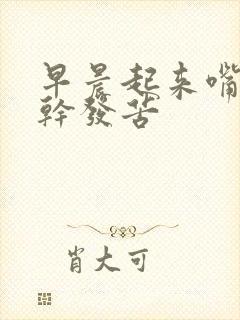 早晨起来嘴
幹發苦
肖大可